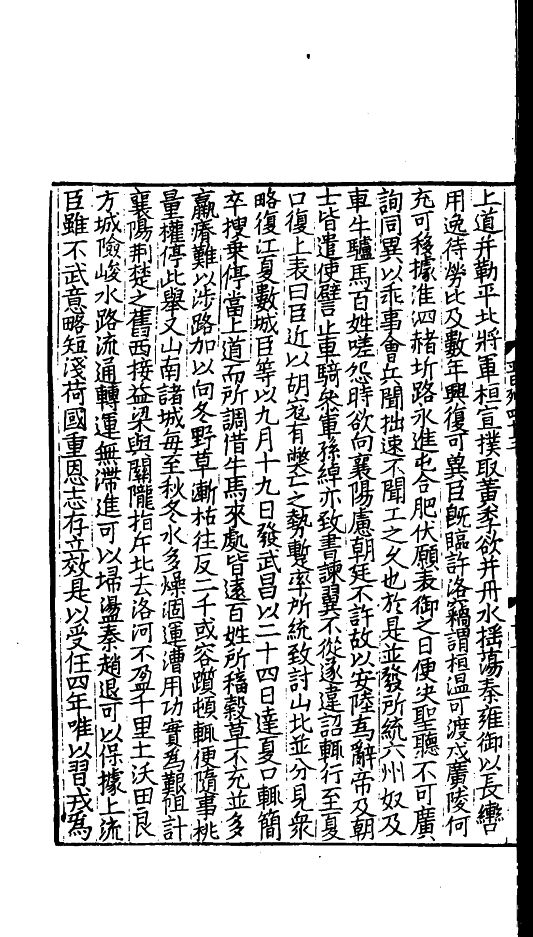 上道并勒平北將軍桓宣撲取黃季欲并丹水揺蕩秦雍御以長轡
用逸待勞比及數年興復可冀臣旣臨許洛竊謂桓温可渡戍廣陵何
充可移據淮泗赭圻路永進屯合肥伏願表御之日便决聖聽不可廣
詢同異以乖事會兵聞拙速不聞工之久也於是並發所統六州奴及
車牛驢馬百姓嗟怨時欲向襄陽慮朝廷不許故以安陸爲辭帝及朝
士皆遣使譬止車騎參軍孫綽亦致書諫翼不從遂違詔輒行至夏
口復上表曰臣近以胡宼有弊亡之勢蹔率所統致討山北並分見衆
略復江夏數城臣等以九月十九日發武昌以二十四日達夏口輒簡
卒搜乗停當上道而所調借牛馬來處皆遠百姓所穡穀草不充並多
羸瘠難以涉路加以向冬野草漸枯往反二千或容躓頓輒便隨事挑
量權停此舉又山南諸城每至秋冬水多燥涸運漕用功實爲艱阻計
襄陽荆楚之舊西接益梁與關隴㧞尓北去洛河不盈千里土沃田良
方城險峻水路流通轉運無滯進可以埽盪秦趙退可以保據上流
臣雖不武意略短淺荷國重恩志存立效是以受任四年唯以習戎爲